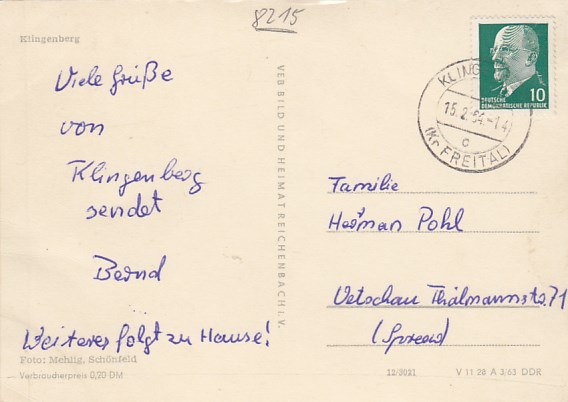 8215
Klingenberg
Viele Grüße
von
Klingenberg
sendet
Bernd
Weiteres folgt zu Hause!
Foto: Mehlig, Schönfeld
Verbraucherpreis 0,20 DM
VEB BILD UND HEIMAT REICHENBACH i. V.
10
DEUTSCHE
DEMOKRATISCHE REPUBLIK
KLING
15.2.64.-1
c
(Kr FREITAL)
Familie
Herman Pohl
Vetschau Thälmannstr. 71
(Spreew)
12/3021
V 11 28 A 3/63 DDR